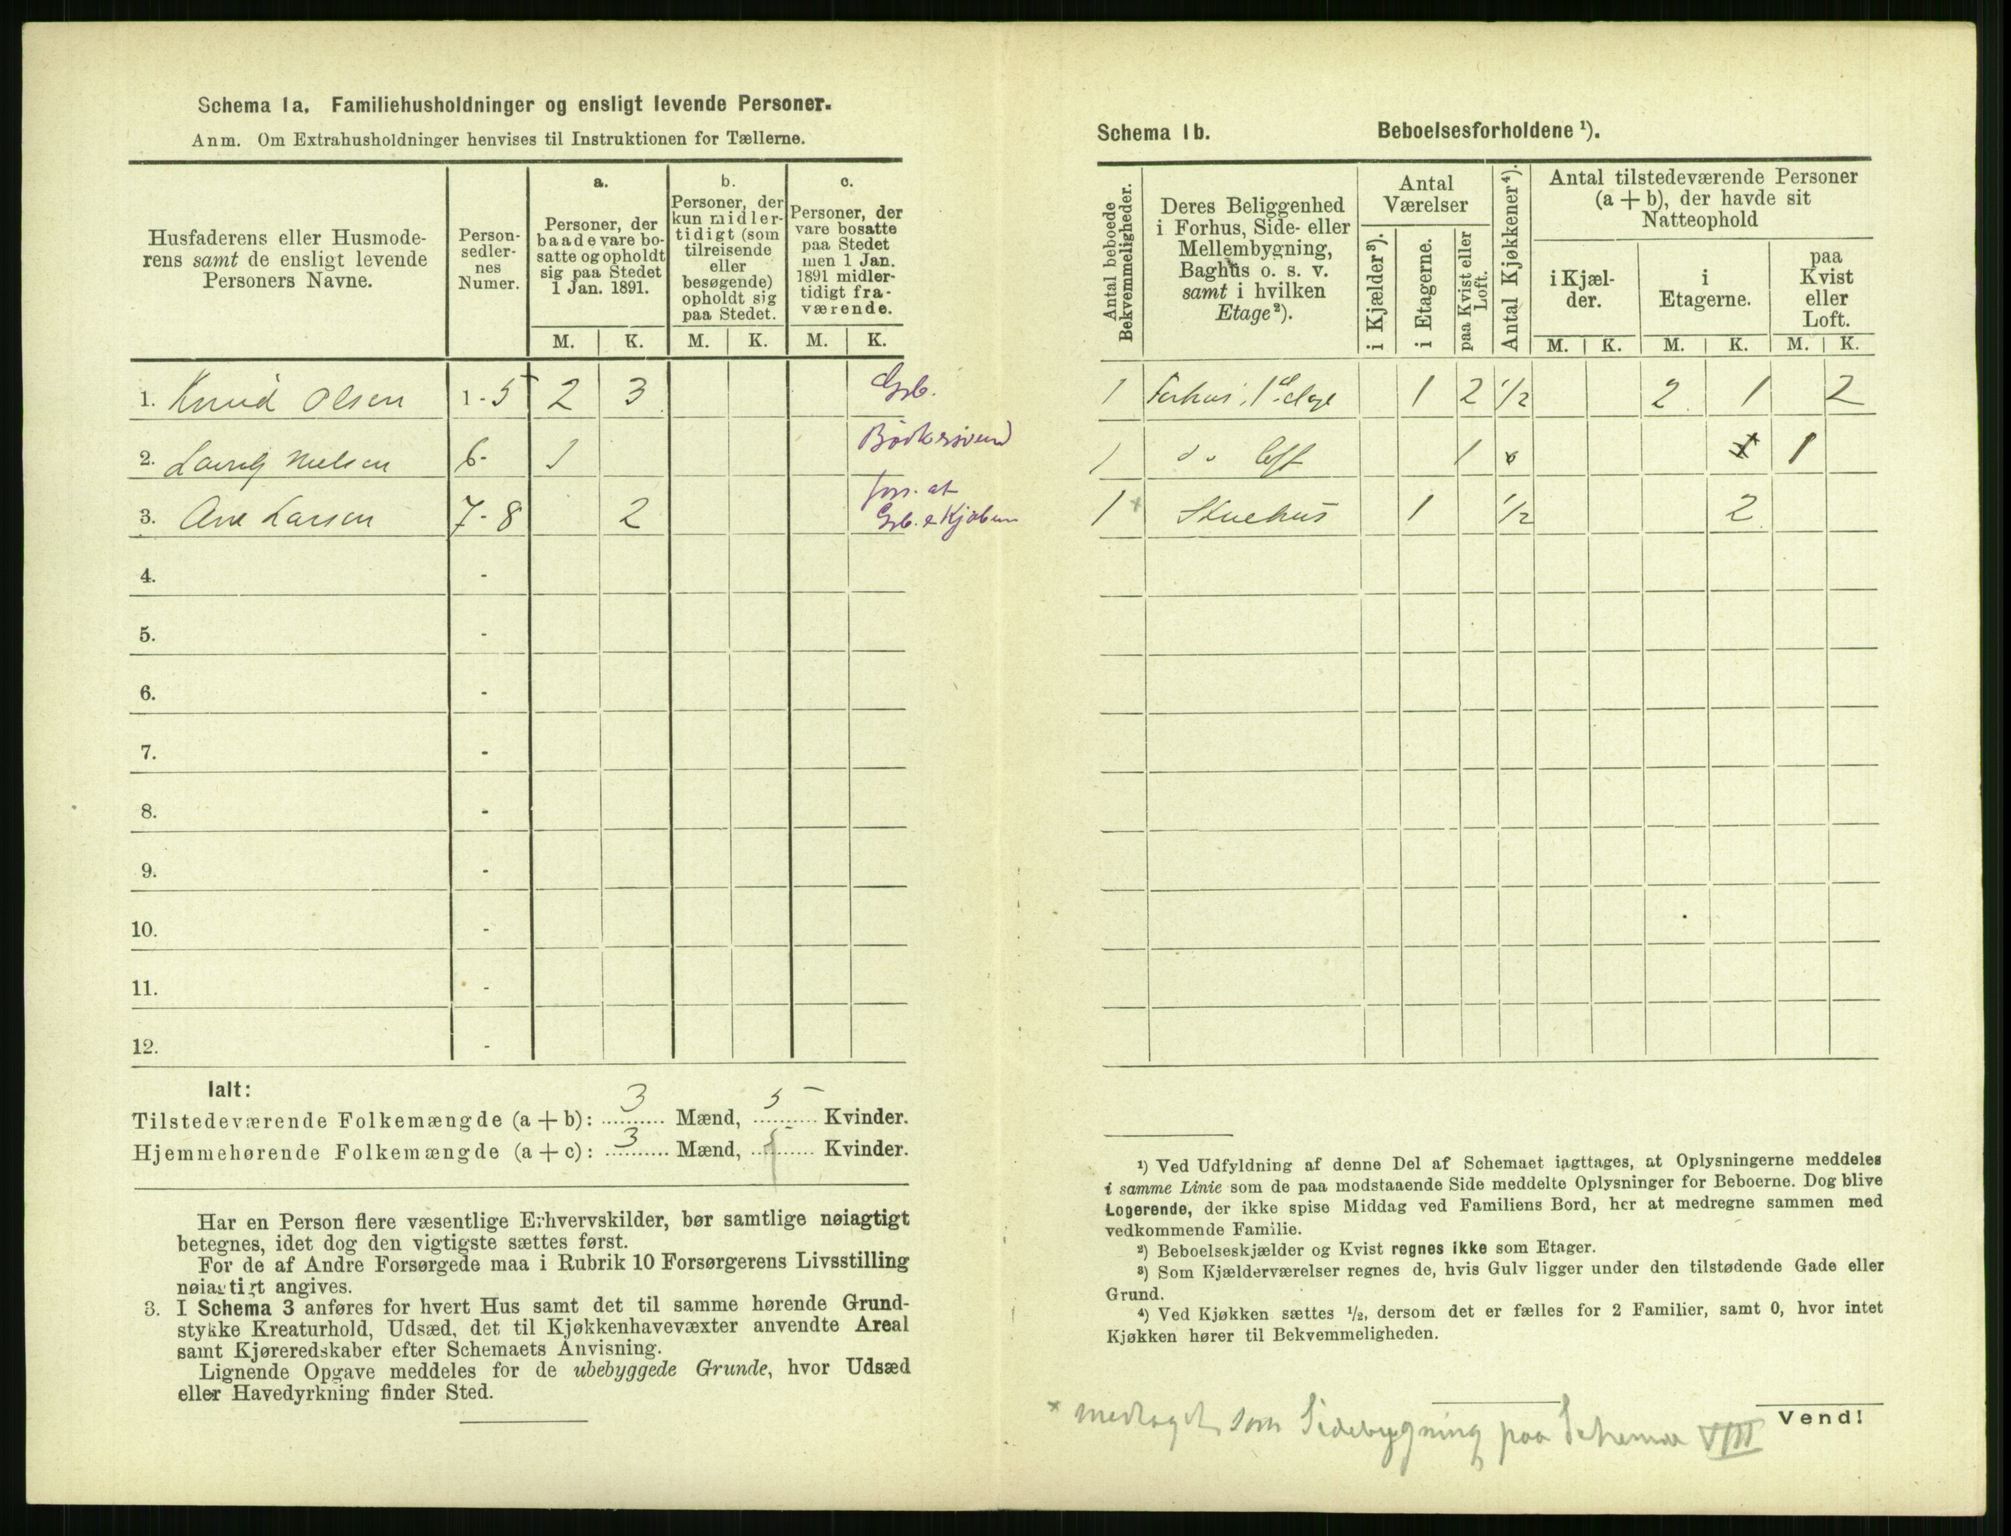 Schema 1a. Familiehusholdninger og ensligt levende Personer.
Anm. Om Extrahusholdninger henvises til Instruktionen for Tællerne.
Husfaderens eller Husmode-
rens samt de ensligt levende
Personers Navne.
Person-
sedler-
nes
Numer.
a.
Personer, der
baade vare bo-
satte og opholdt
sig paa Stedet
1 Jan. 1891.
b.
Personer, der
kun midler-
tidigt (som
tilreisende
eller
besøgende)
opholdt sig
paa Stedet.
c.
Personer, der
vare bosatte
paa Stedet
men 1 Jan.
1891 midler-
tidigt fra-
værende.
M. K. M. K. M. K.
1. Knud Olsen 1 - 5 2 3 Grb.
2. Lauritz Nielsen 6 - 1 Bødkersvend
3. Ane Larsen 7 - 8 2 fors. af
Grb. & Kjøbm
4. -
5. -
6. -
7. -
8. -
9. -
10. -
11. -
12. -
Ialt:
Tilstedeværende Folkemængde (a + b): 3 Mænd, 5 Kvinder.
Hjemmehørende Folkemængde (a + c): 3 Mænd, 5 Kvinder.
Har en Person flere væsentlige Erhvervskilder, bør samtlige nøiagtigt
betegnes, idet dog den vigtigste sættes først.
For de af Andre Forsørgede maa i Rubrik 10 Forsørgerens Livsstilling
nøiagtigt angives.
3. I Schema 3 anføres for hvert Hus samt det til samme hørende Grund-
stykke Kreaturhold, Udsæd, det til Kjøkkenhavevæxter anvendte Areal
samt Kjøreredskaber efter Schemaets Anvisning.
Lignende Opgave meddeles for de ubebyggede Grunde, hvor Udsæd
eller Havedyrkning finder Sted.
Schema 1b. Beboelsesforholdene ¹).
Antal beboede
Bekvemmeligheder.
Deres Beliggenhed
i Forhus, Side- eller
Mellembygning,
Baghus o. s. v.
samt i hvilken
Etage²).
Antal
Værelser
i Kjælder³).
i Etagerne.
paa Kvist eller
Loft.
Antal Kjøkkener⁴).
Antal tilstedeværende Personer
(a + b), der havde sit
Natteophold
i Kjæl-
der.
i
Etagerne.
paa
Kvist
eller
Loft.
M. K. M. K. M. K.
1 Forhus, 1ᵉ Etage 1 2 1/2 2 1 2
1 do loft 1 0 1 1
1 × Stuehus 1 1/2 2
¹) Ved Udfyldning af denne Del af Schemaet iagttages, at Oplysningerne meddeles
i samme Linie som de paa modstaaende Side meddelte Oplysninger for Beboerne. Dog blive
Logerende, der ikke spise Middag ved Familiens Bord, her at medregne sammen med
vedkommende Familie.
²) Beboelseskjælder og Kvist regnes ikke som Etager.
³) Som Kjælderværelser regnes de, hvis Gulv ligger under den tilstødende Gade eller
Grund.
⁴) Ved Kjøkken sættes ½, dersom det er fælles for 2 Familier, samt 0, hvor intet
Kjøkken hører til Bekvemmeligheden.
Vend!
× medtaget som Sidebygning paa Schema VIII